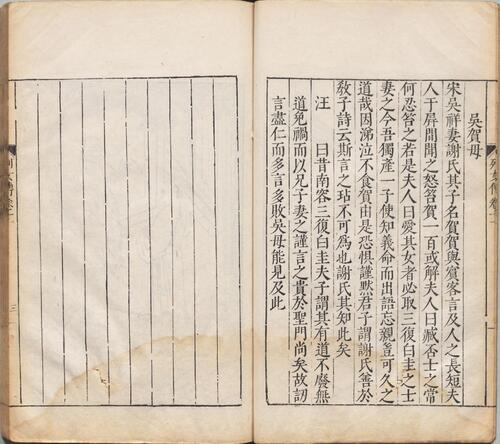 吳賀母
宋吳祥妻謝氏其子名賀賀與賓客言及人之長短夫
人于屏間聞之怒笞賀一百或解夫人曰臧否士之常
何忍笞之若是夫人曰愛其女者必取三復白圭之士
妻之今吾獨產一子使知義命而出語忘親豈可久之
道哉因涕泣不食賀由是恐懼謹默君子謂謝氏善於
敎子詩云斯言之玷不可為也謝氏其知此矣
汪 曰昔南容三復白圭夫子謂其有道不廢無
道免禍而以兄子妻之謹言之貴於聖門尚矣故訒
言盡仁而多言多敗吳母能見及此
列女傳卷十
三